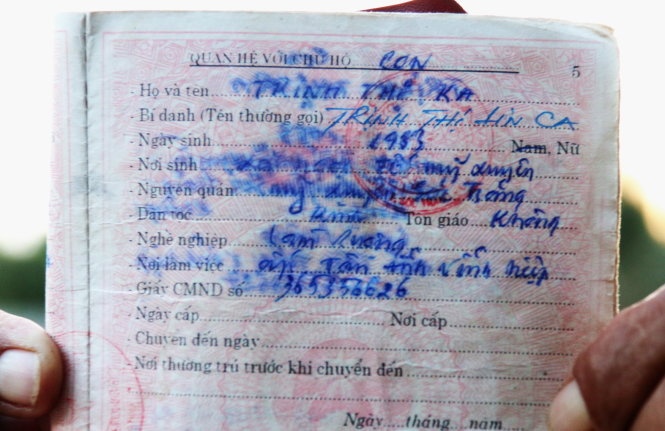 QUAN HỆ VỚI CHỦ HỘ CON
5
- Họ và tên TRỊNH THẾ KA
- Bí danh (Tên thường gọi) TRỊNH THỊ LIN CA
- Ngày sinh 1983 Nam, Nữ
- Nơi sinh Mỹ Xuyên
- Nguyên quán Trăng
- Dân tộc Kinh Tôn giáo Không
- Nghề nghiệp Làm Ruộng
- Nơi làm việc Vĩnh
- Giấy CMND số 365356626
- Ngày cấp Nơi cấp
- Chuyển đến ngày
- Nơi thường trú trước khi chuyển đến
Ngày tháng năm